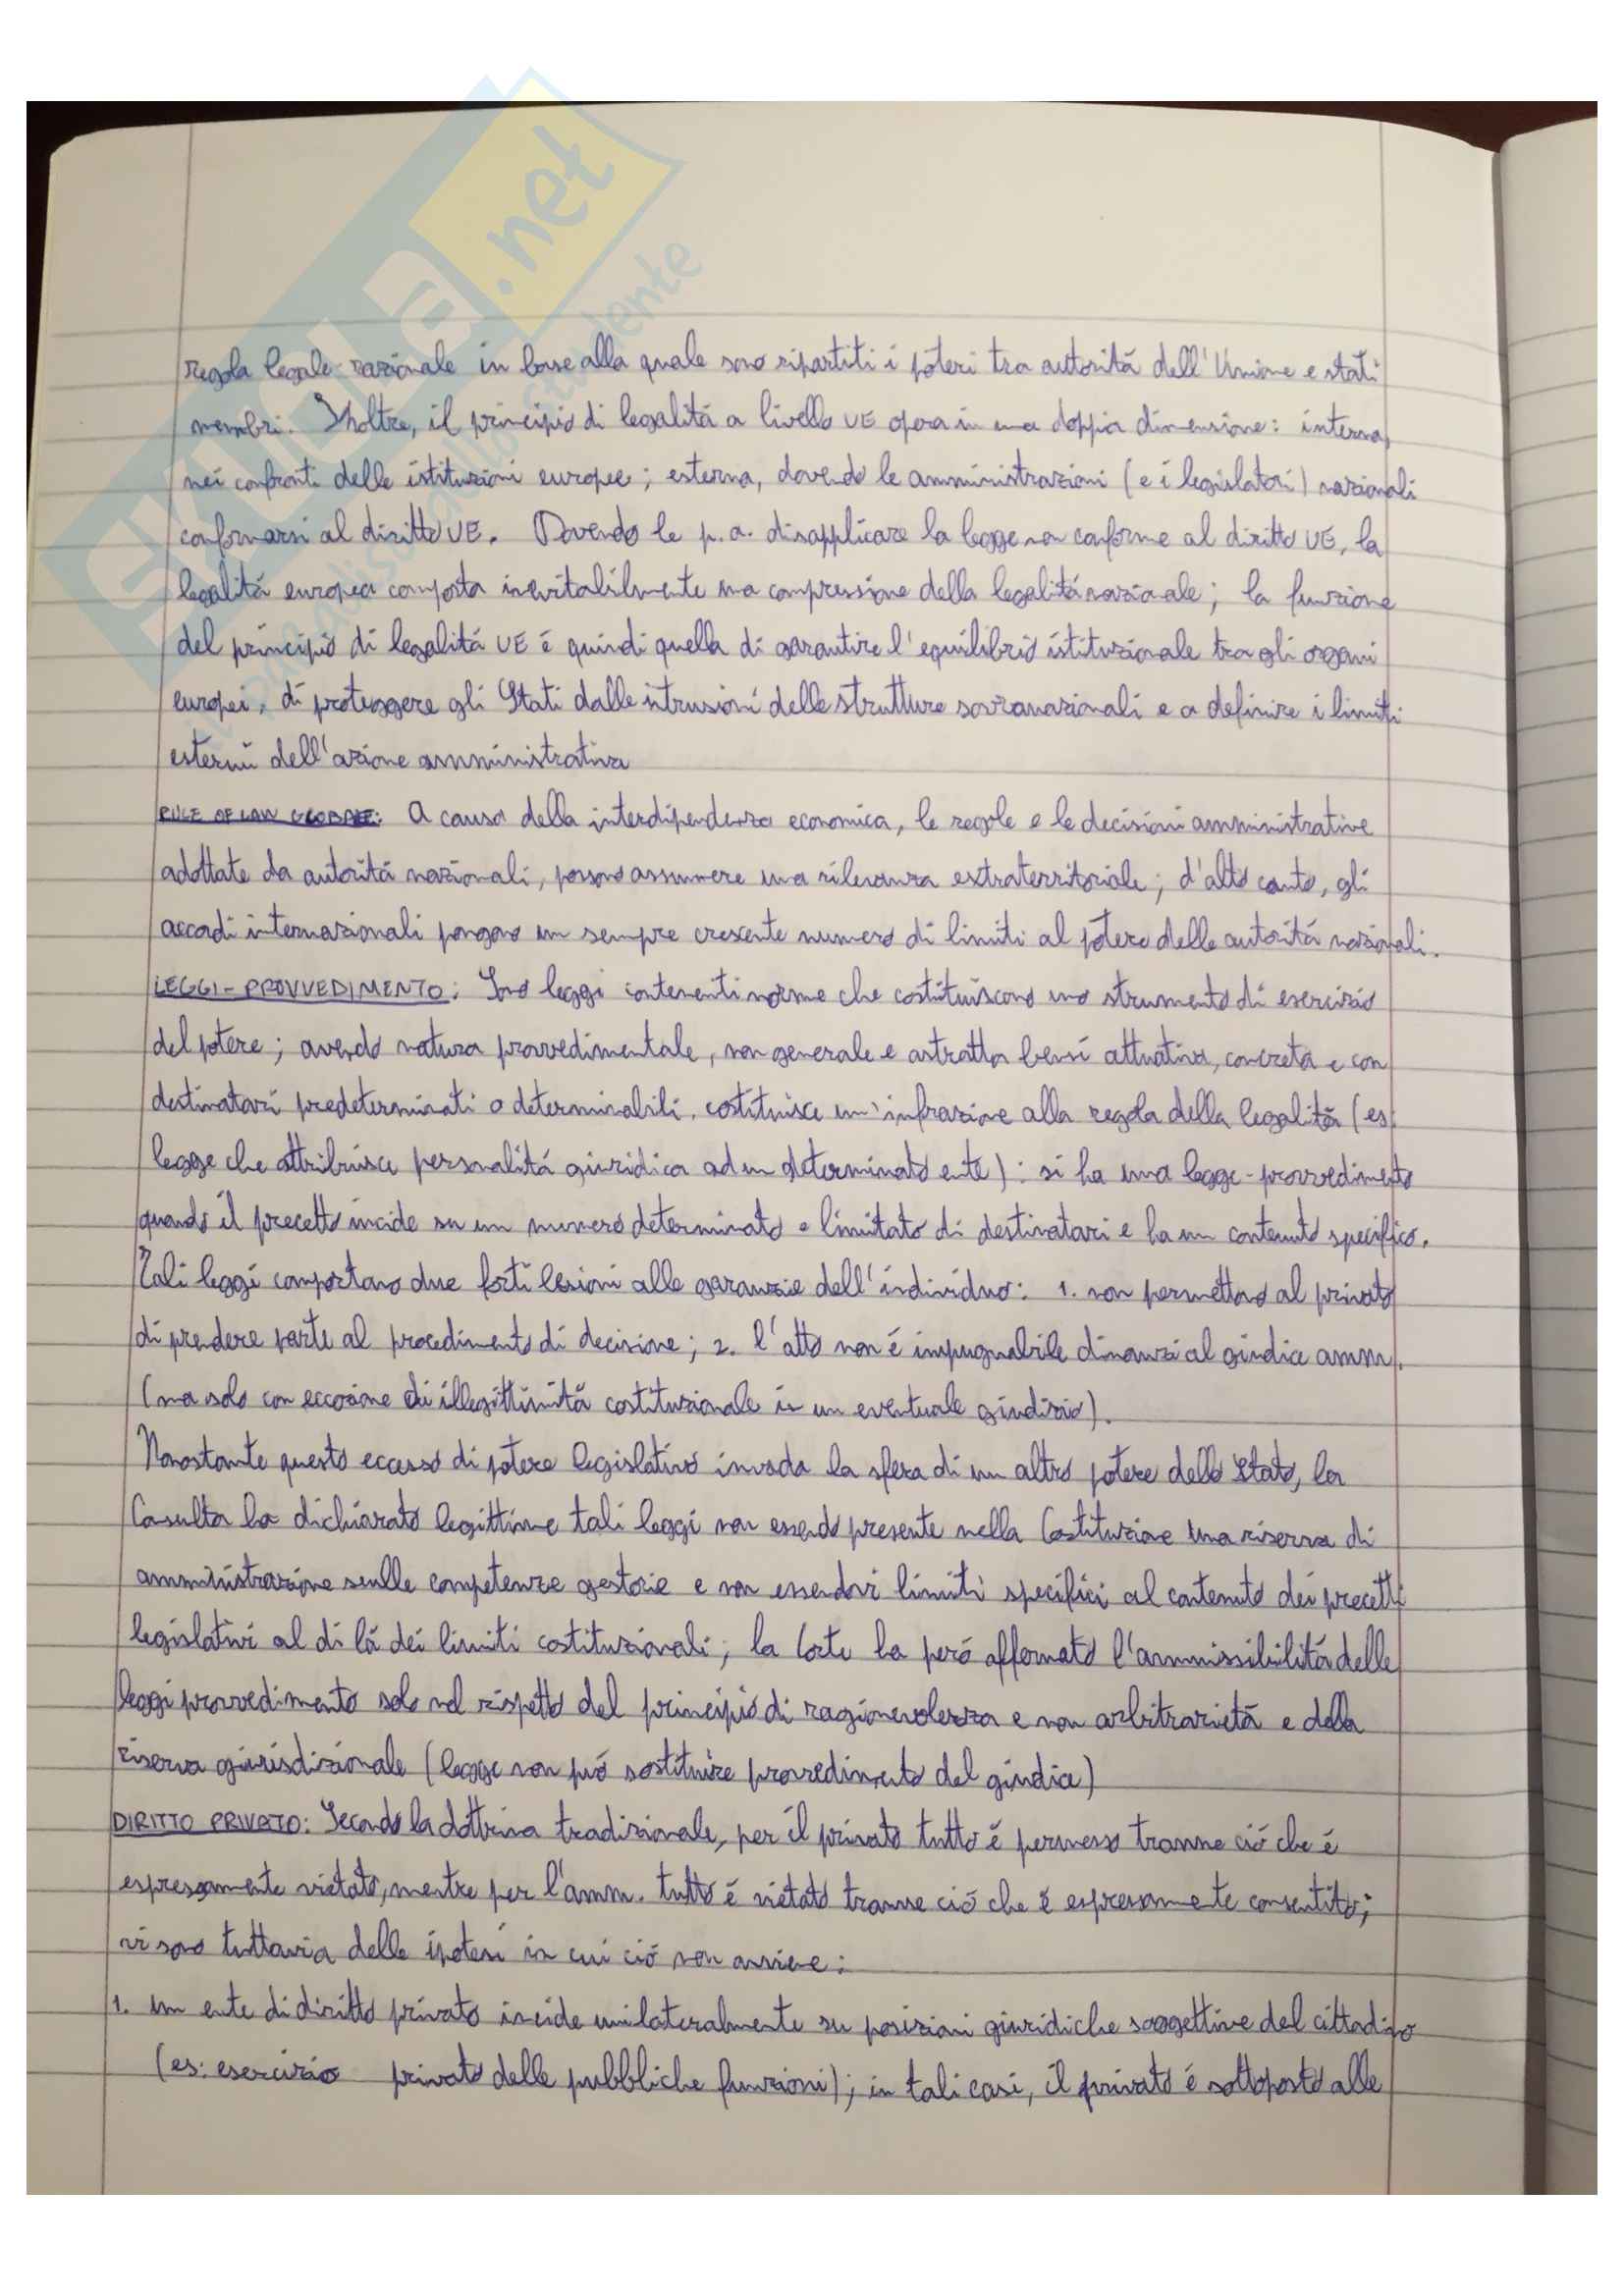 regola legale-razionale in base alla quale sono ripartiti i poteri tra autorità dell'Unione e stati
membri. Inoltre, il principio di legalità a livello UE opera in una doppia dimensione: interna,
nei confronti delle istituzioni europee; esterna, dovendo le amministrazioni (e i legislatori) nazionali
conformarsi al diritto UE. Dovendo le p.a. disapplicare la legge non conforme al diritto UE, la
legalità europea comporta inevitabilmente una compressione della legalità nazionale; la funzione
del principio di legalità UE é quindi quella di garantire l'equilibrio istituzionale tra gli organi
europei, di proteggere gli Stati dalle intrusioni delle strutture sovranazionali e a definire i limiti
esterni dell'azione amministrativa
RULE OF LAW GLOBALE: A causa della interdipendenza economica, le regole e le decisioni amministrative
adottate da autorità nazionali, possono assumere una rilevanza extraterritoriale; d'alto canto, gli
accordi internazionali pongono un sempre crescente numero di limiti al potere delle autorità nazionali.
LEGGI-PROVVEDIMENTO: Sono leggi contenenti norme che costituiscono uno strumento di esercizio
del potere; avendo natura provvedimentale, non generale e astratta bensí attuativa, concreta e con
destinatari predeterminati o determinabili, costituisce un'infrazione alla regola della legalità (es:
legge che attribuisce personalità giuridica ad un determinato ente): si ha una legge-provvedimento
quando il precetto incide su un numero determinato e limitato di destinatari e ha un contenuto specifico.
Tali leggi comportano due forti lesioni alle garanzie dell'individuo: 1. non permettono al privato
di prendere parte al procedimento di decisione; 2. l'atto non é impugnabile dinanzi al giudice amm.
(ma solo con eccezione di illegittimità costituzionale in un eventuale giudizio).
Nonostante questo eccesso di potere legislativo invada la sfera di un altro potere dello Stato, la
Consulta ha dichiarato legittime tali leggi non essendo presente nella Costituzione una riserva di
amministrazione sulle competenze gestorie e non essendovi limiti specifici al contenuto dei precetti
legislativi al di lá dei limiti costituzionali; la Corte ha peró affermato l'ammissibilità delle
leggi provvedimento solo nel rispetto del principio di ragionevolezza e non arbitrarietà e della
riserva giurisdizionale (legge non puó sostituire provvedimento del giudice)
DIRITTO PRIVATO: Secondo la dottrina tradizionale, per il privato tutto é permesso tranne ció che é
espressamente vietato, mentre per l'amm. tutto é vietato tranne ció che é espressamente consentito;
vi sono tuttavia delle ipotesi in cui ció non avviene:
1. un ente di diritto privato incide unilateralmente su posizioni giuridiche soggettive del cittadino
(es: esercizio privato delle pubbliche funzioni); in tali casi, il privato é sottoposto alle
.net